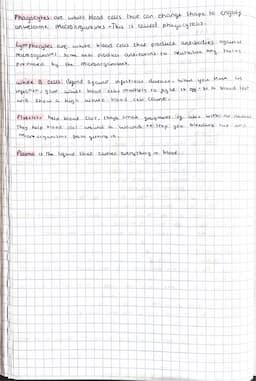 Phagocytes are white blood cells that can change shape to engulf
unwelcome microorganisms - This is called phagocytosis.
Lymphocytes are white blood cells that produce antibodies against
microorganisms. Some also produce antitoxins to neutralise any toxins
produced by the microorganisms.
white B cells defend against infectious disease. When you have an
infection, your white blood cells multiply to fight it off - so a blood test
will show a high white blood cell count.
Platelets help blood clot. They're small fragments of cells with no nucleus
They help blood clot wound to stop you bleeding out and
microorganisms from getting in.
Plasma is the liquid that carries everything in blood.